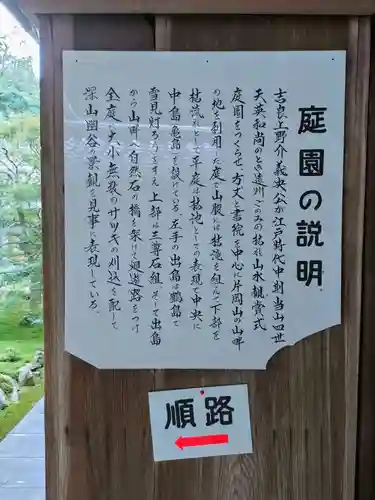 庭園の説明
吉良上野介義央公が江戸時代中期当山四世
天英和尚のとき遠州ごのみの枯山水観賞式
庭園をつくらせ、方丈と書院を中心に片岡山の山畔
の地を利用した庭で山腹には枯滝を組んで下部を
枯流れとして平庭は枯池としての表現で中央に
中島亀島を設けている。左手の出島は鶴島で
雪見灯ろうをすえ上部は三尊石組、そして出島
から山畔へ自然石の橋を架けて廻遊路をつけ
全庭に大小無数のサツキの刈込を配して
深山幽谷の景観を見事に表現している。
順路